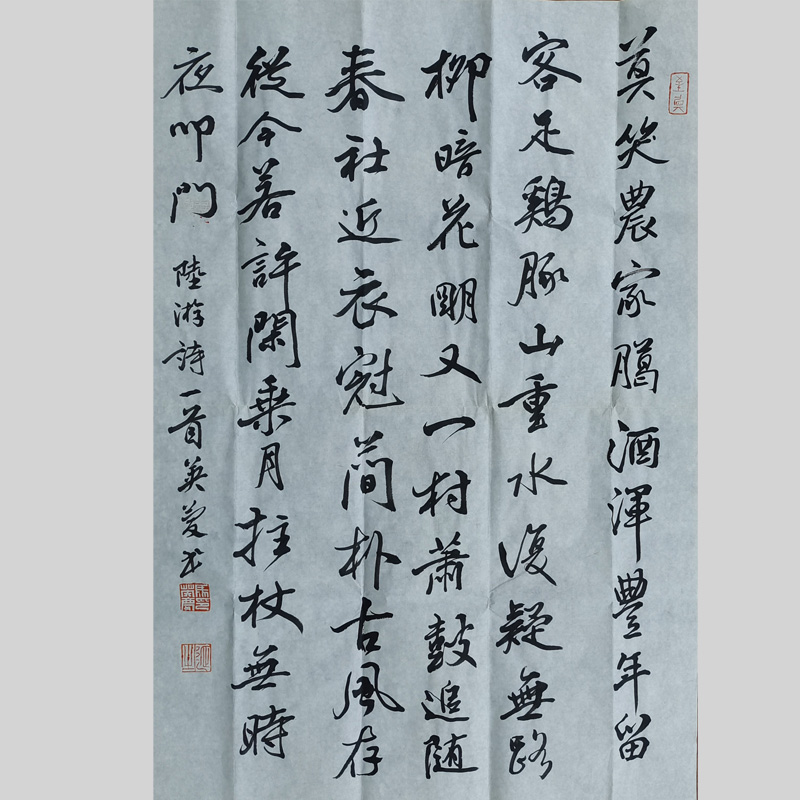 莫笑農家臈酒渾豐年留
客足鷄豚山重水復疑無路
柳暗花朙又一村蕭鼓追随
春社近衣冠簡朴古風存
從今若許閑乗月拄杖無時
夜叩門
陸游詩一首英爱书